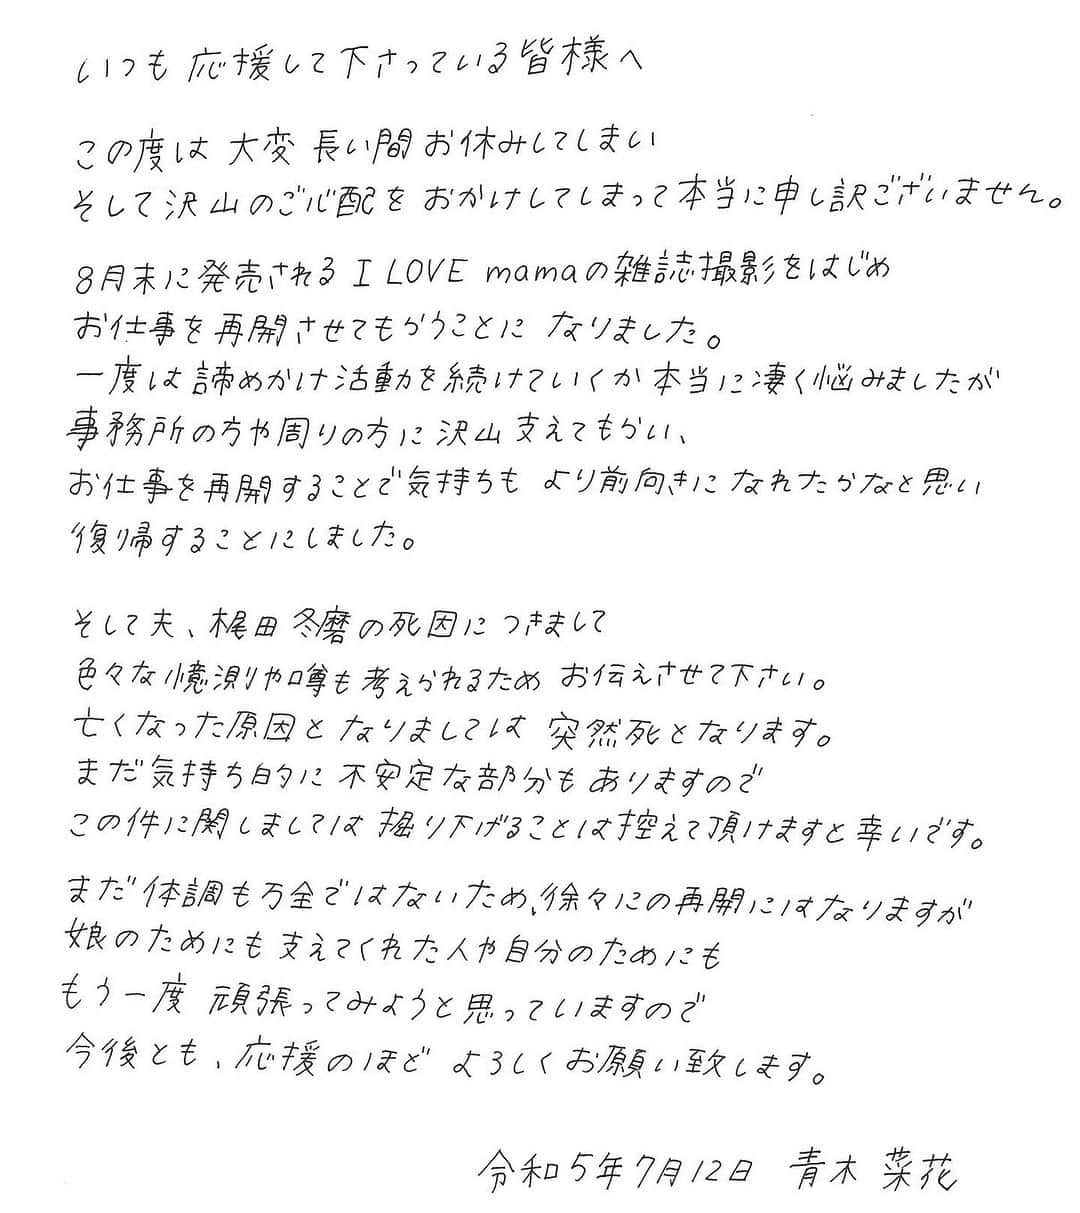 いつも 応援して下さっている皆様へ
この度は 大変 長い間 お休みしてしまい
そして沢山のご心配を おかけしてしまって本当に申し訳ございません。
8月末に発売される I LOVE mamaの雑誌撮影をはじめ
お仕事を再開させてもらうことに なりました。
一度は諦めかけ活動を続けていくか 本当に凄く悩みましたが
事務所の方や周りの方に沢山 支えてもらい、
お仕事を再開することで気持ちも より前向きに なれたらなと思い
復帰することにしました。
そして夫、梶田 冬磨の死因に つきまして
色々な憶測や噂も考えられるため お伝えさせて下さい。
亡くなった原因と なりましては 突然死となります。
まだ気持ち的に 不安定な部分も ありますので
この件に関しましては 掘り下げることは控えて頂けますと幸いです。
まだ体調も万全ではないため、徐々にの再開にはなりますが
娘のためにも 支えてくれた人や自分のためにも
もう一度 頑張ってみようと思っていますので
今後とも、応援のほど よろしくお願い致します。
令和5年7月12日 青木 菜花